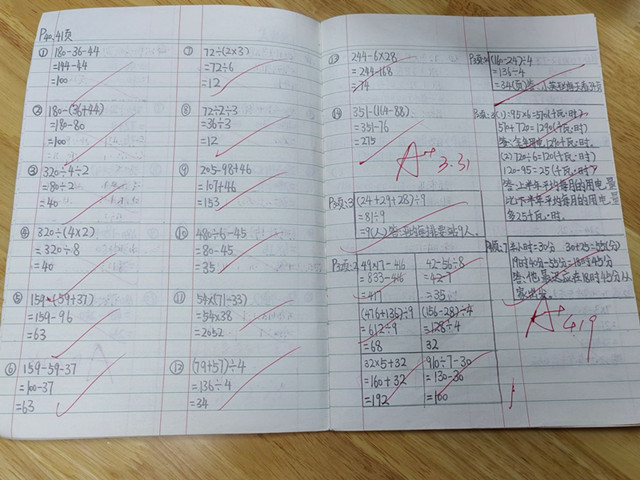 P40,41页
① 180-36-44
=144-44
=100
② 180-(36+44)
=180-80
=100
③ 320÷4÷2
=80÷2
=40
④ 320÷(4×2)
=320÷8
=40
⑤ 159-(59+37)
=159-96
=63
⑥ 159-59-37
=100-37
=63
⑦ 72÷(2×3)
=72÷6
=12
⑧ 72÷2÷3
=36÷3
=12
⑨ 205-98+46
=107+46
=153
⑩ 480÷6-45
=80-45
=35
⑪ 54×(71-33)
=54×38
=2052
⑫ (79+57)÷4
=136÷4
=34
⑬ 244-6×28
=244-168
=74
⑭ 351-(164-88)
=351-76
=275
A++ 3.31
(24+29+28)÷9
=81÷9
49×17-416
=833-416
=417
42-56÷8
=42-7
=35
(476+136)÷9
=612÷9
=68
(156-28)÷4
=128÷4
32
32×5+32
=160+32
=192
910÷7-30
=130-30
=100
(160-24)÷4
=136÷4
(1)=95×6=570(千瓦·时)
570+720=1290(千瓦·时)
答:全年用电1290千瓦·时。
(2)720÷6=120(千瓦·时)
120-95=25(千瓦·时)
答:下半年平均每月的用电量
比上半年平均每月的用电量
多25千瓦·时。
半小时=30分 30+25=55(分)
答:他最迟应在18时45分从
家出发。
A++ 4.19